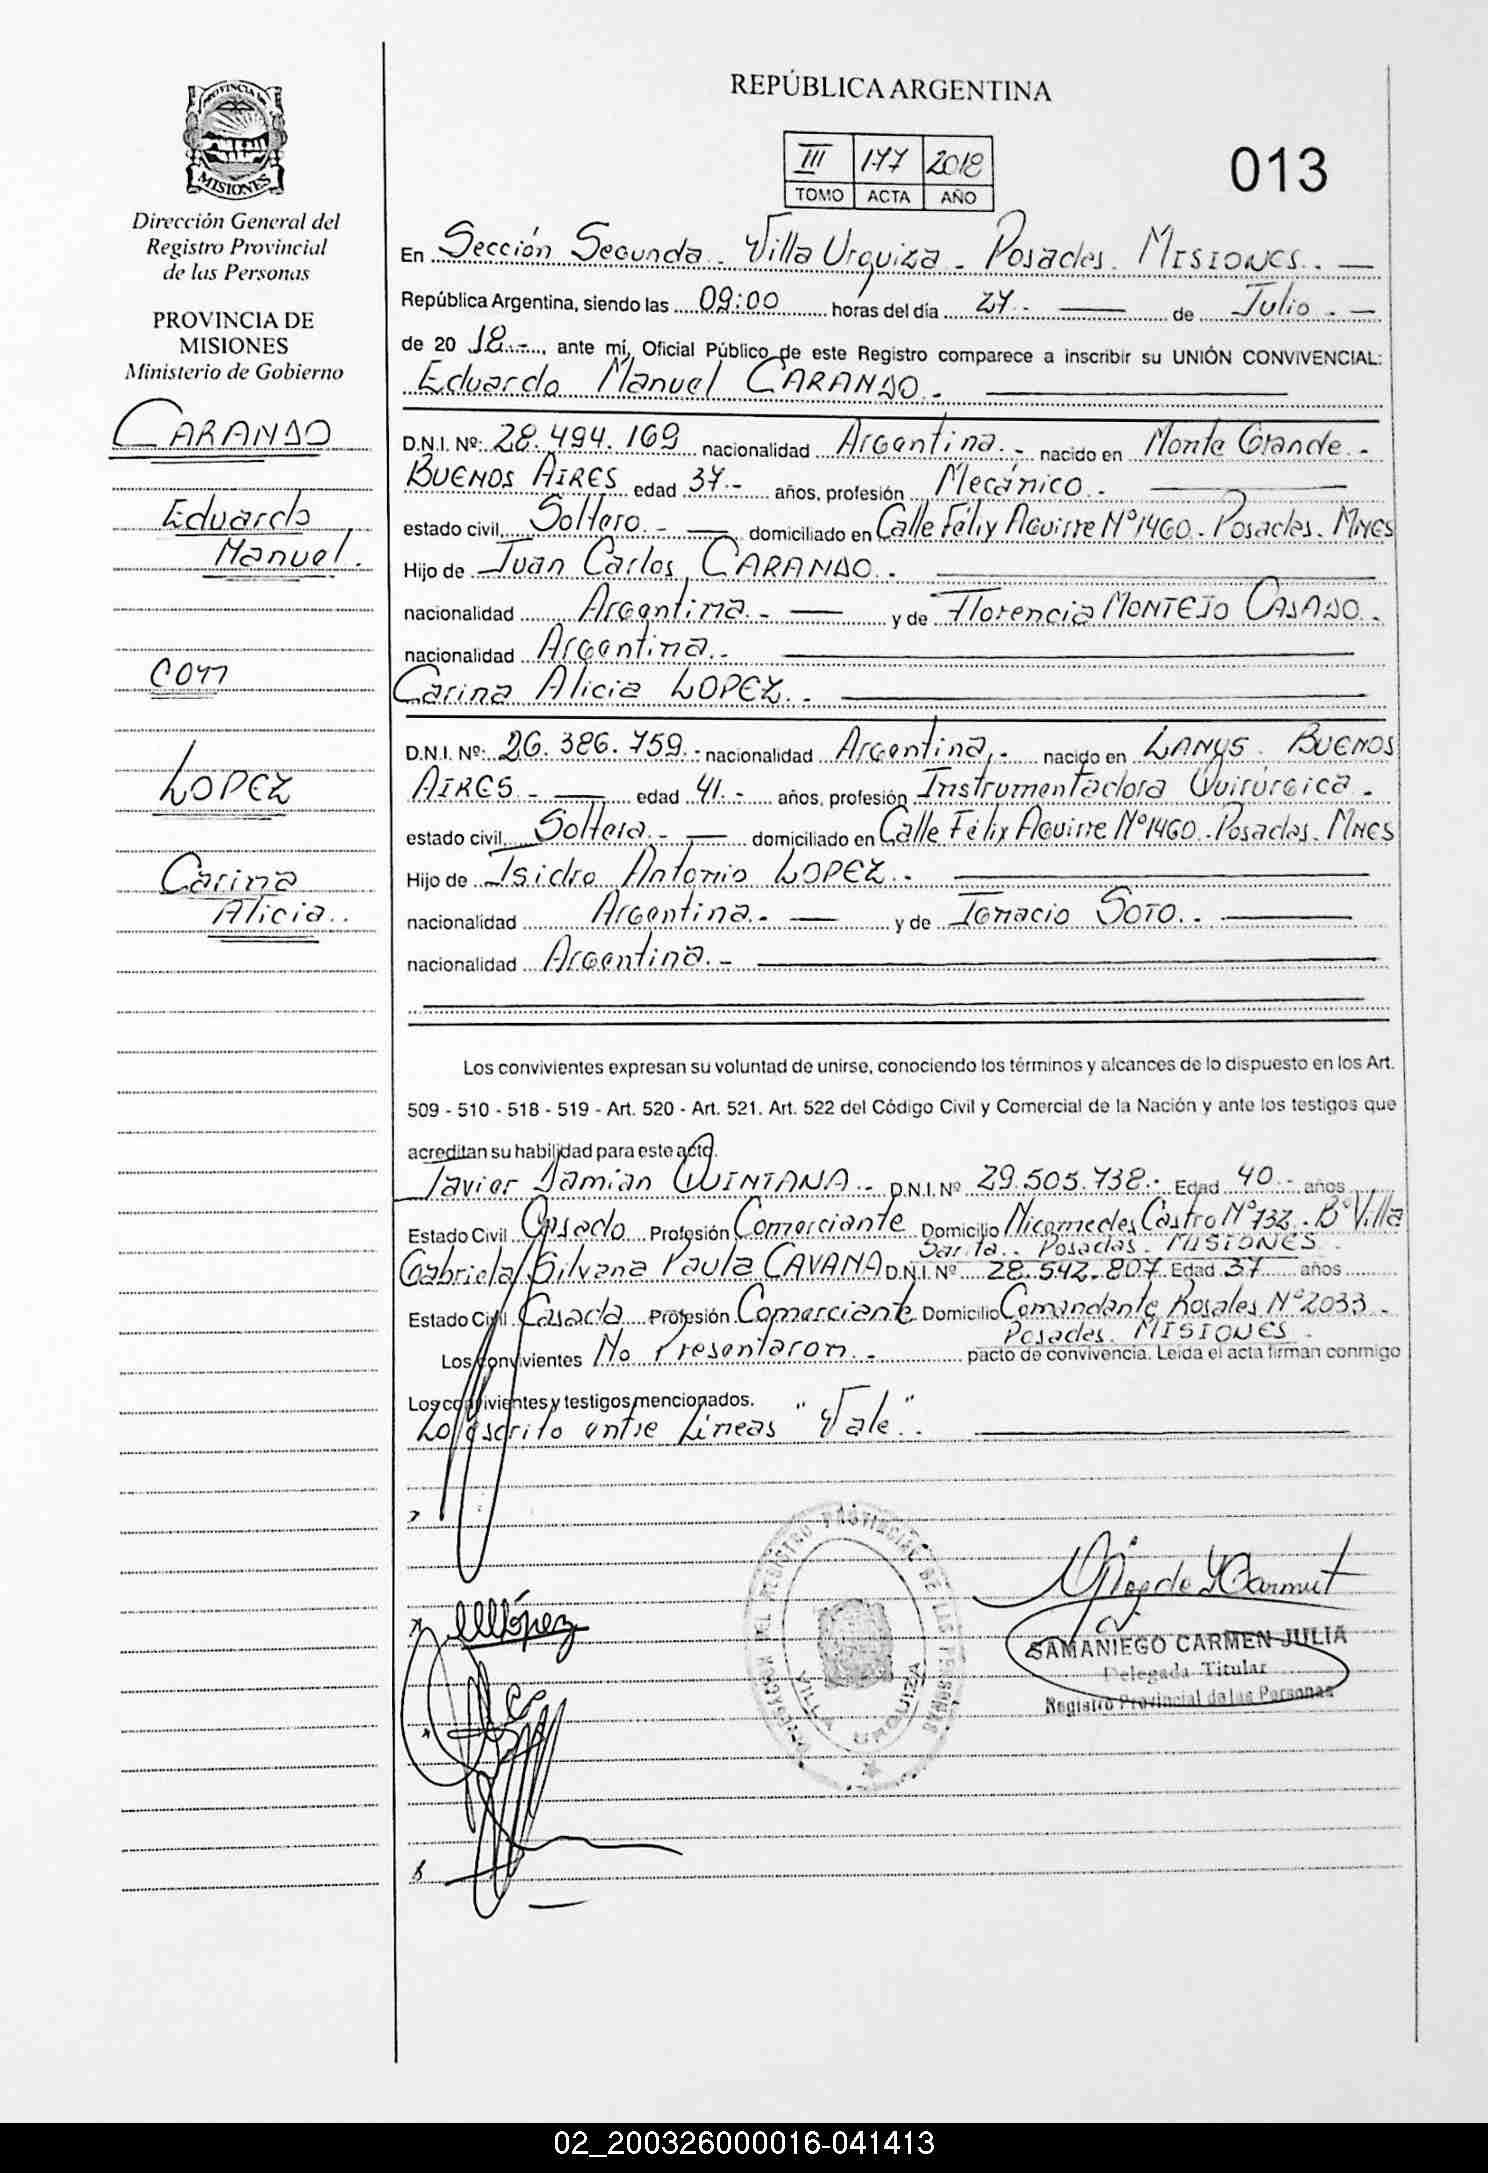 REPÚBLICA ARGENTINA
III 177 2018
TOMO ACTA AÑO
013
PROVINCIA DE
MISIONES
Dirección General del
Registro Provincial
de las Personas
PROVINCIA DE
MISIONES
Ministerio de Gobierno
CARANDO
Eduardo
Manuel.
con
LOPEZ
Carina
Alicia..
En Sección Segunda. Villa Urquiza. Posadas. MISIONES.
República Argentina, siendo las 09:00 horas del día 27.- de Julio.-
de 20 18.-, ante mí, Oficial Público de este Registro comparece a inscribir su UNIÓN CONVIVENCIAL:
Eduardo Manuel CARANDO.-
D.N.I. Nº: 28.494.169 nacionalidad Argentina.- nacido en Monte Grande.-
BUENOS AIRES edad 37.- años, profesión Mecánico.-
estado civil Soltero.- domiciliado en Calle Félix Aguirre Nº 1460. Posadas. Mnes
Hijo de Juan Carlos CARANDO.-
nacionalidad Argentina.- y de Florencia MONTEJO CASADO.
nacionalidad Argentina.-
Carina Alicia LOPEZ.-
D.N.I. Nº: 26.386.759.- nacionalidad Argentina.- nacido en LANUS. BUENOS
AIRES.- edad 41.- años, profesión Instrumentadora Quirúrgica.-
estado civil Soltera.- domiciliado en Calle Félix Aguirre Nº 1460. Posadas. Mnes
Hijo de Isidro Antonio LOPEZ.-
nacionalidad Argentina.- y de Ignacio SOTO.
nacionalidad Argentina.-
Los convivientes expresan su voluntad de unirse, conociendo los términos y alcances de lo dispuesto en los Art.
509 - 510 - 518 - 519 - Art. 520 - Art. 521. Art. 522 del Código Civil y Comercial de la Nación y ante los testigos que
acreditan su habilidad para este acto.
Javier Damian QUINTANA.- D.N.I. Nº 29.505.738.- Edad 40.- años
Estado Civil Casado Profesión Comerciante Domicilio Nicomedes Castro Nº 732. Bº Villa
Sarita. Posadas. MISIONES.
Gabriela Silvana Paula CAVANA D.N.I. Nº 28.542.807 Edad 37 años
Estado Civil Casada Profesión Comerciante Domicilio Comandante Rosales Nº 2033.-
Posadas. MISIONES.
Los convivientes No Presentaron.- pacto de convivencia. Leída el acta firman conmigo
Los convivientes y testigos mencionados.
Lo escrito entre Líneas "Vale".
López
VILLA URQUIZA
SAMANIEGO CARMEN JULIA
Delegada Titular
Registro Provincial de las Personas
02_200326000016-041413